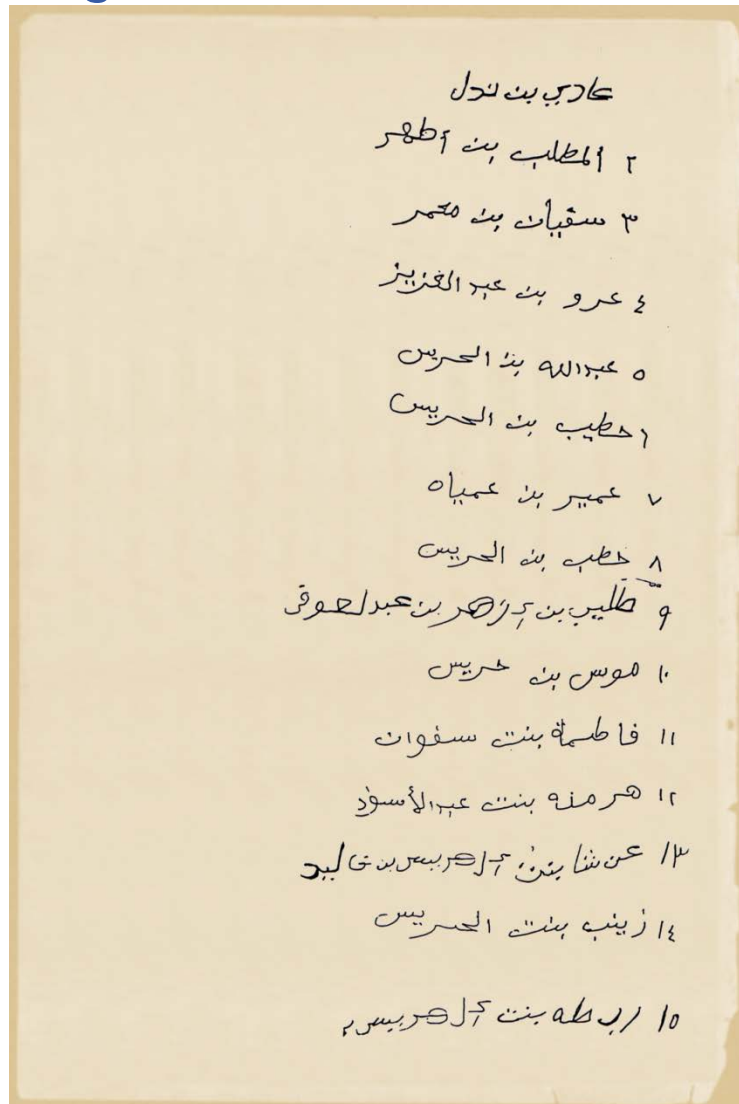 عادي بن ندل
٢ المطلب بن أطهر
٣ سفيان بن معمر
٤ عرو بن عبد العزيز
٥ عبدالله بن الحرس
٦ حطيب بن الحريس
٧ عمير بن عمياه
٨ خطب بن الحريس
٩ طليب بن إزهر بن عبد لعوفى
١٠ موس بن حريس
١١ فاطمة بنت سفوان
١٢ هرمنه بنت عبدالأسود
١٣ بنت
١٤ زينب بنت الحريس
١٥ بنت